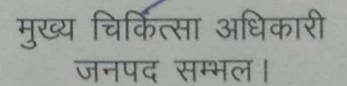 मुख्य चिकित्सा अधिकारी
जनपद सम्भल।